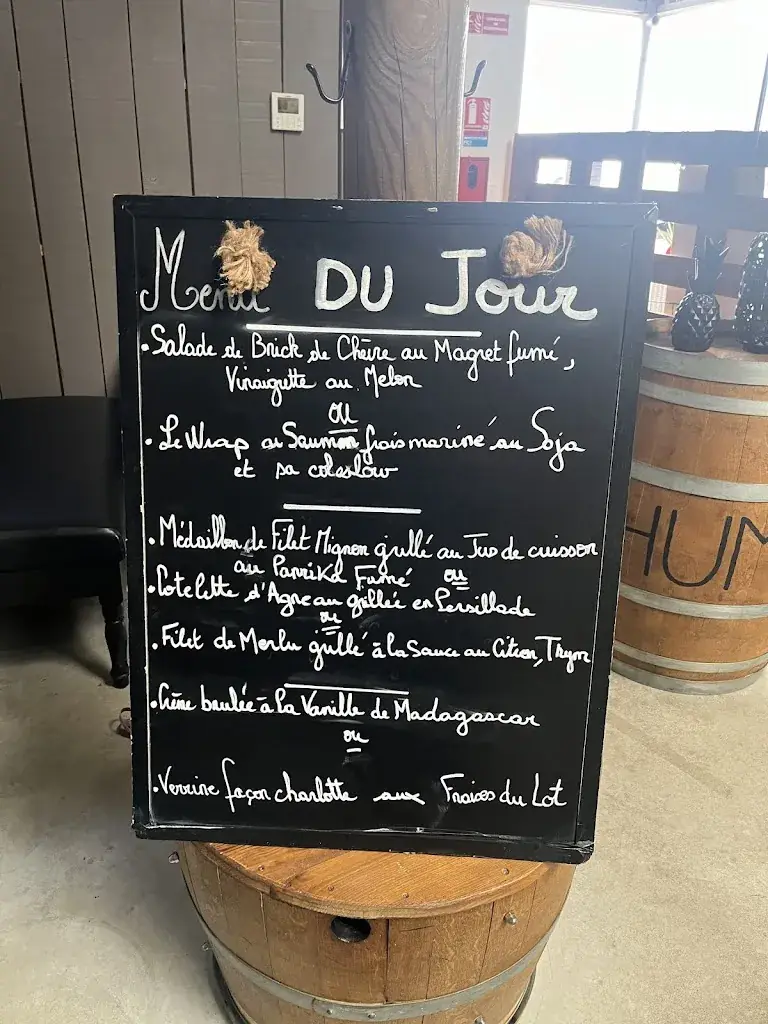 Menu DU Jour
• Salade de Brick de Chèvre au Magret fumé,
Vinaigrette au Melon
ou
• Le Wrap au Saumon frais mariné au Soja
et sa coleslow
• Médaillon de Filet Mignon grillé au Jus de cuisson
au Paprika Fumé ou
• Cotelette d'Agneau grillée en Persillade
ou
• Filet de Merlu grillé à la Sauce au Citron, Thym
• Crème brulée à la Vanille de Madagascar
ou
• Verrine façon charlotte aux Fraises du Lot
HUM